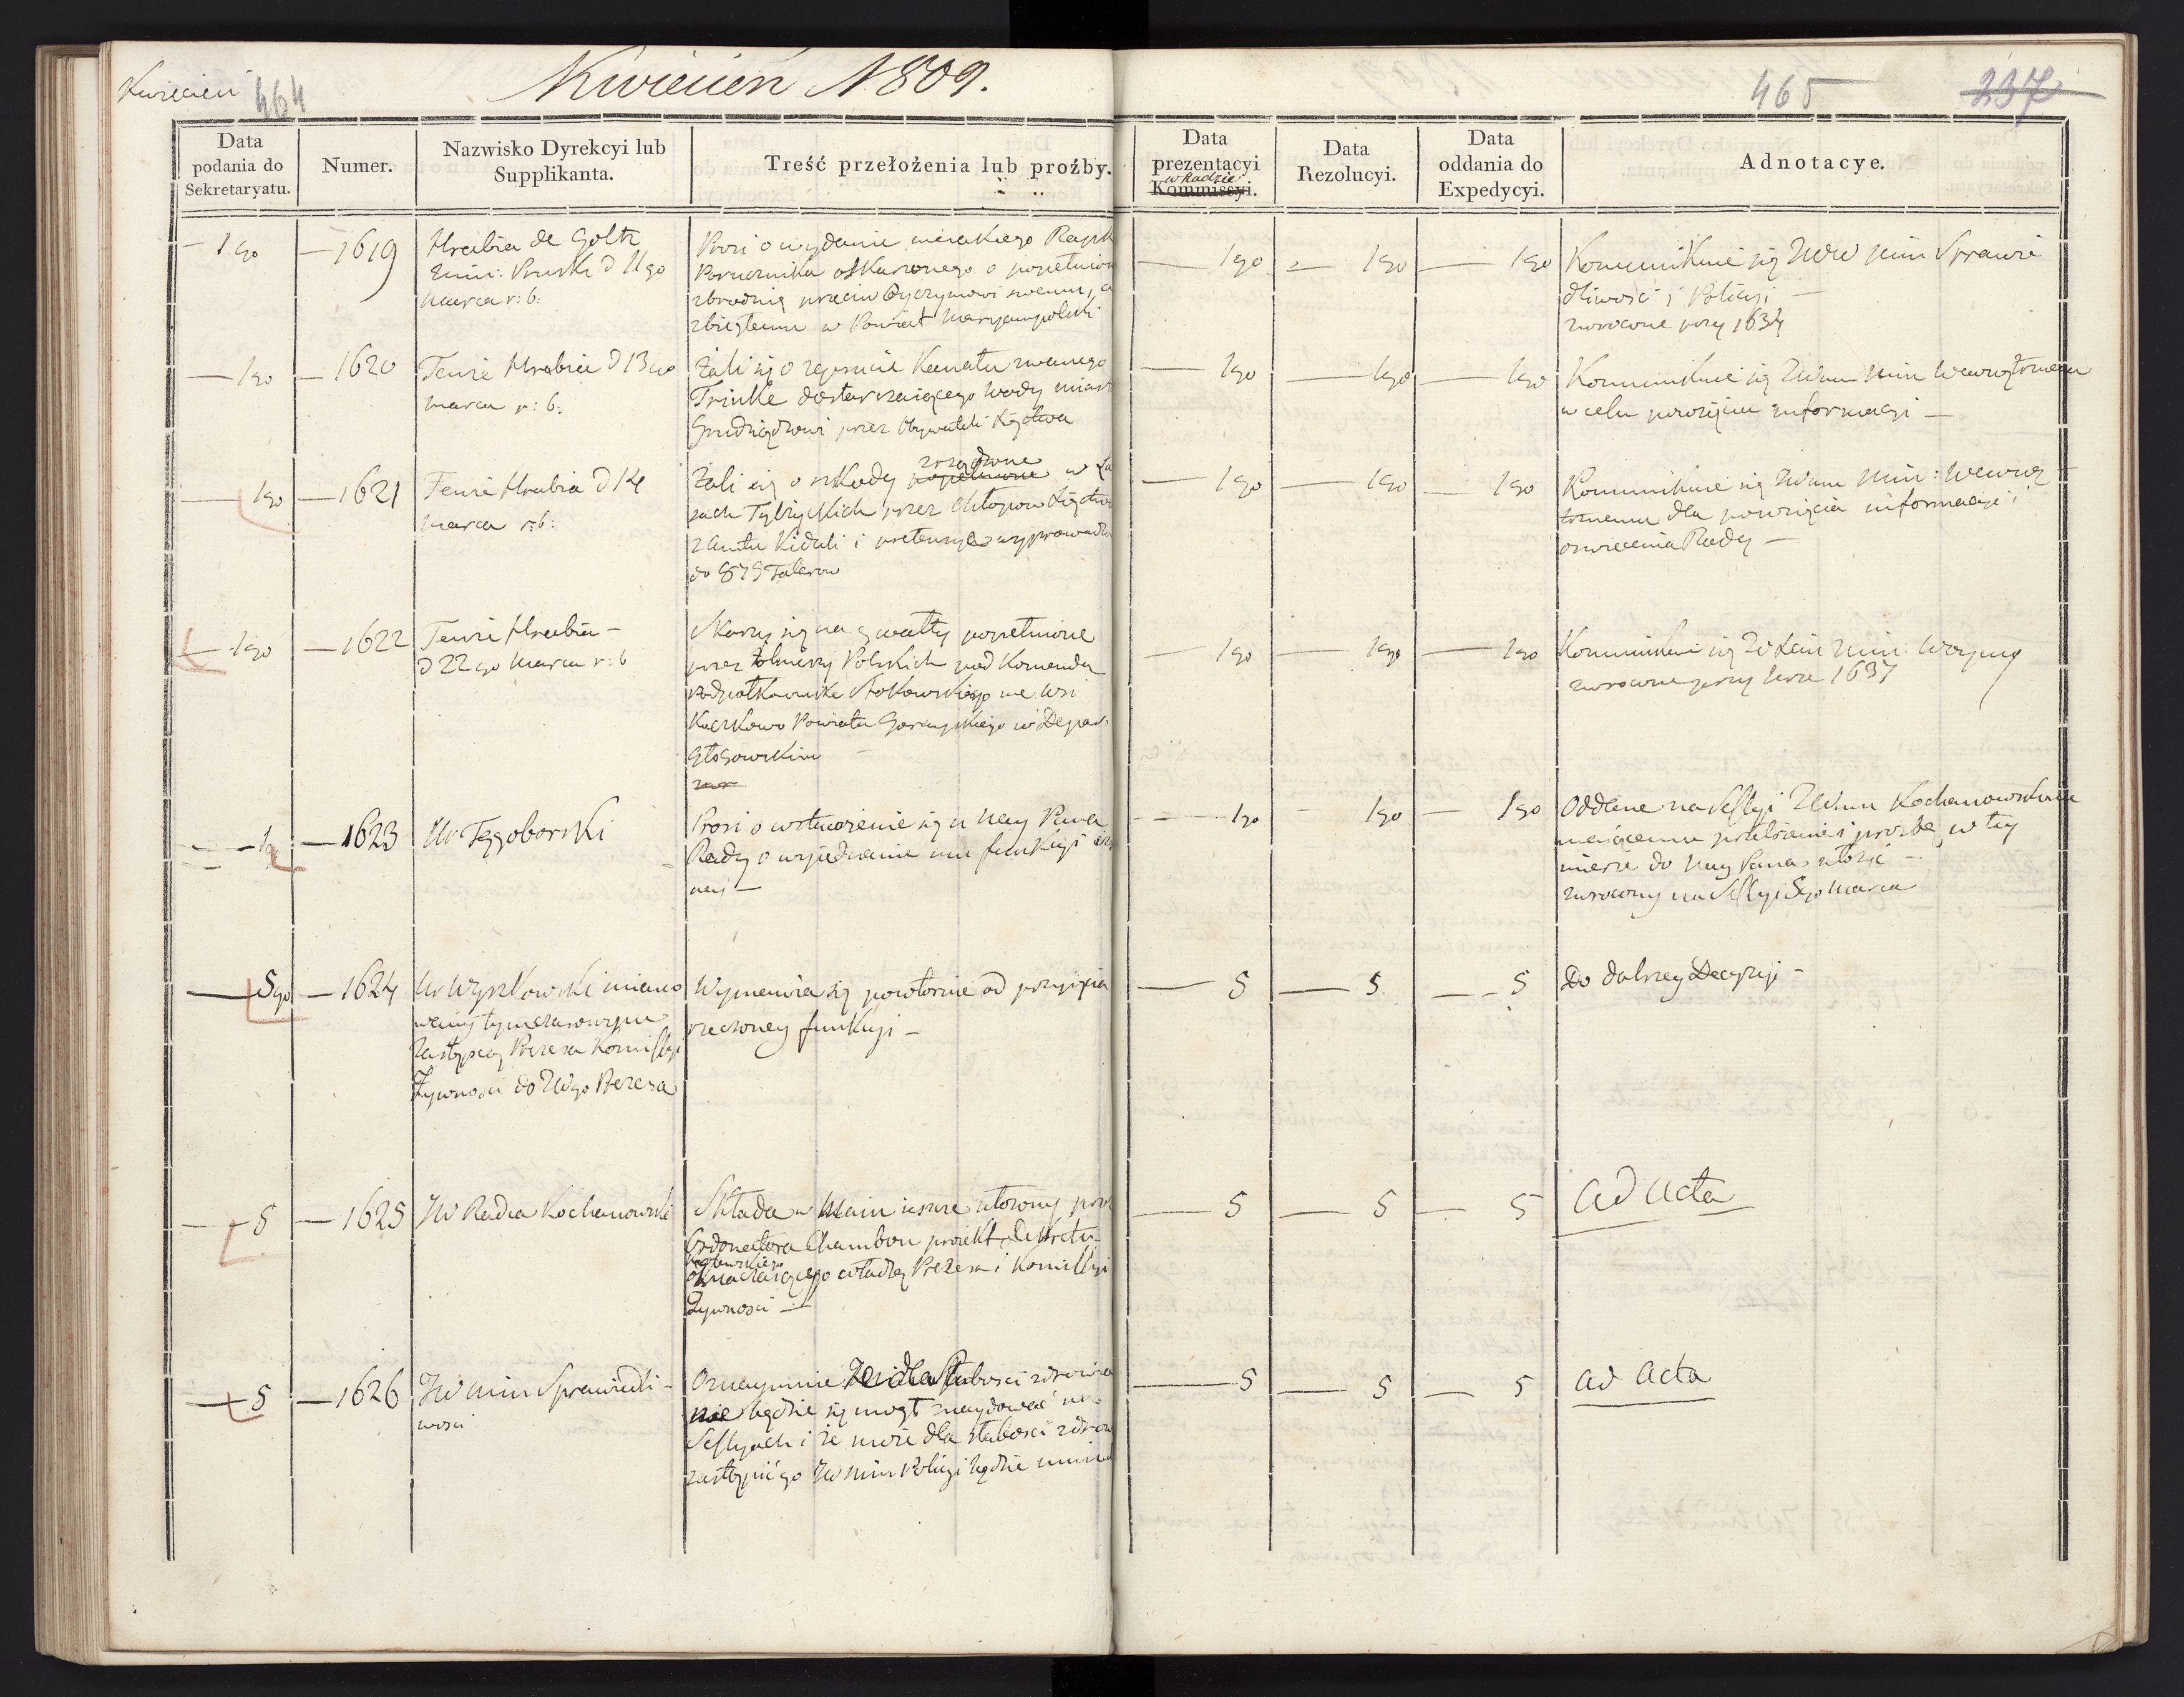 Kwiecień 464
Kwiecień 1809.
465 237
Data podania do Sekretaryatu.
Numer.
Nazwisko Dyrekcyi lub Supplikanta.
Treść przełożenia lub proźby.
Data prezentacyi w Radzie Kommissyi.
Data Rezolucyi.
Data oddania do Expedycyi.
Adnotacye.
1go
1619
Hrabia de Goltz
Pruski d 11go
Marca r: b:
Prosi o wydanie nieiakiego
Porucznika oskarżonego o
zbrodnię przeciw Oyczymowi swemu,
zbiegłemu w Powiat Maryampolski
1go
1go
1go
Kommunikuie się JWW Min Sprawie
dliwości i Policyi
zwrocone przy 1634
1go
1620
Tenże Hrabia d 13go
Marca r: b:
Żali się o zepsucie Kanału zwanego
Trinke dostarczaiącego wody
Grudziądzowi przez Obywateli Xięstwa
1go
1go
1go
Kommunikuie się JWmu Min Wewnętrznemu
w celu powzięcia informacyi
1go
1621
Tenże Hrabia d 14
Marca r: b:
Żali się o szkody popełnione zrządzone w
sach Tylżyckich przez Chłopow Xięstwa
z Amtu Kiduli i pretensye
do 879 Talerow
1go
1go
1go
Kommunikuie się JWmu Min: Wewnę
trznemu dla powzięcia informacyi i
oswiecenia Rady
1go
1622
Tenże Hrabia
d 22go Marca r: b
Skarży się na gwałty popełnione
przez Żołnierzy Polskich pod Komendą
Podpółkownika Stokowskiego we wsi
Kaczkowo Powiatu w Depar:
Głogowskim
1go
1go
1go
Kommunikuie się Min: Woyny
zwrocone przy Nrze 1637
1go
1623
Ur Tęgoborski
Prosi o wstawienie się u Nay Pana
Rady o funkcyi
ney
1go
1go
1go
Oddane na Sessyi JWmu Kochanowskiemu
maiącemu i prozbę w tey
mierze do Nay Pana ułożyć
zwrocony na Sessyi 5go Marca
5go
1624
Ur Wyszkowski miano
wany tymczasowym
Zastępcą Prezesa Komissyi
Żywności do JWgo Prezesa
Wymawia się powtornie od przyięcia
rzeczoney funkcyi
5
5
5
Do dalszey Decyzyi
5
1625
JW Radca Kochanowski
Składa w ułożony
Ordonatora Chambon proiekt Dekretu
Krolewskiego
oznaczaiącego władzę Prezesa i Komissyi
Żywności
5
5
5
Ad Acta
5
1626
JW Min Sprawiedli-
wości
Oznaymuie że dla słabości zdrowia
nie będzie się mogł znaydować na
Sessyach i że może dla słabości zdrow
zastąpić go JW Min Policyi będzie
5
5
5
Ad Acta